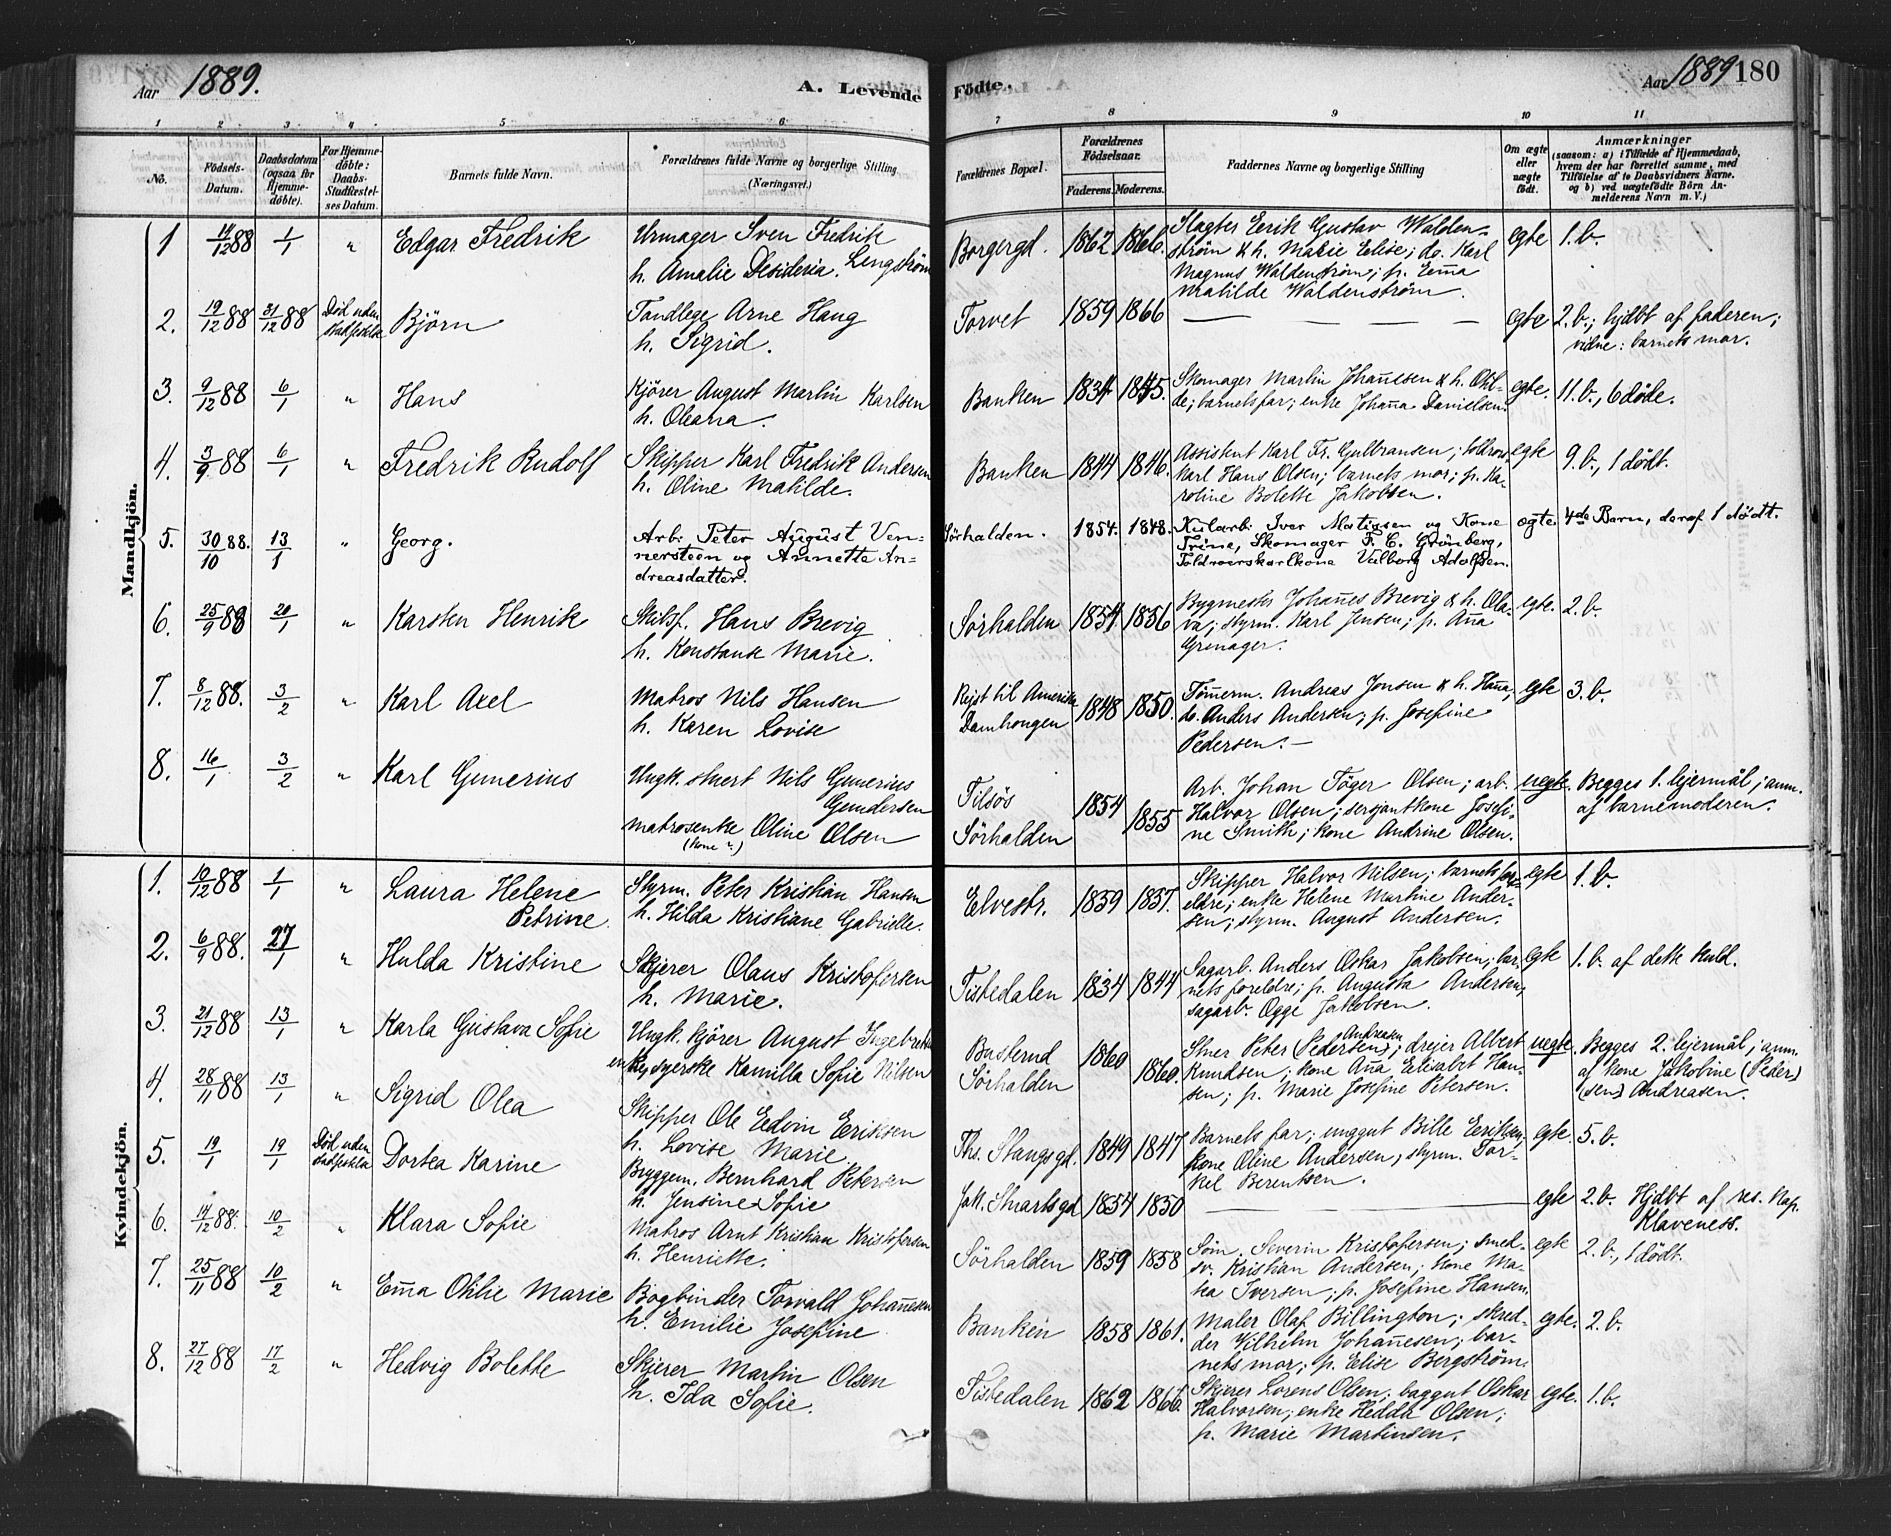 Aar 1889.
A. Levende
Fødte.
Aar 1889
180
1 2 3 4 5 6 7 8 9 10 11
No.
Fødsels-Datum.
Daabsdatum (ogsaa for Hjemmedøbte).
For Hjemmedøbte: Daabs-Stadfæstelses Datum.
Barnets fulde Navn.
Forældrenes fulde Navne og borgerlige Stilling (Næringsvei.)
Forældrenes Bopæl.
Forældrenes Fødselsaar.
Faderens. Moderens.
Faddernes Navne og borgerlige Stilling
Om ægte eller uægte født.
Anmærkninger
(saasom: a) i Tilfælde af Hjemmedaab, hvem der har forrettet samme, med Tilføielse af to Daabsvidners Navne, og b) ved uægtefødte Børn Anmelderens Navn m. V.)
Mandkjøn.
1 14/12 88 1/1 " Edgar Fredrik
Urmager Sven Fredrik Lengström
h. Amalie Desideria.
Borgergd. 1862 1866.
Slagter Erik Gustav Walden-
strøm & h. Marie Elise; do. Karl
Magnus Waldenstrøm; p. Emma
Matilde Waldenstrøm.
egte 1. b.
2. 19/12 88 31/12 88 Død uden stadfestelse Bjørn
Tandlege Arne Haug
h. Sigrid.
Torvet 1859 1866
— — — —
egte 2. b.; hjdbt af faderen;
vidne: barnets mor.
3. 9/12 88 6/1 " Hans
Kjører August Martin Karlsen
h. Oleana.
Banken 1834 1845.
Skomager Martin Johannesen & h. Otil-
de; barnets far; enke Johanna Danielsen.
egte. 11. b., 6 døde.
4. 3/9 88 6/1 " Fredrik Rudolf
Skipper Karl Fredrik Andersen
h. Oline Matilde.
Banken 1844 1846.
Assistent Karl Fr. Gulbransen; toldrors
karl Hans Olsen; barnets mor; p. Ka-
roline Bolette Jakobsen.
egte 9. b., 1 dødt.
5. 30/10 88. 13/1 " Georg.
Arb. Peter August Ven-
nersteen og Annette An-
dreasdatter.
Sörhalden. 1854. 1848.
Kularb. Iver Matissen og Kone
Trine, Skomager F. C. Grönberg,
Toldroerskarlkone Valborg Adolfsen.
ægte. 4de Barn, deraf 1 dødt.
6. 25/9 88 20/1 " Karsten Henrik
Skibsf. Hans Brevig
h. Konstanse Marie.
Sörhalden 1854 1856
Bygmester Johannes Brevig & h. Ola-
va; styrm. Karl Jensen; p. Anna
Grenager.
egte. 2. b.
7. 8/12 88. 3/2 " Karl Axel
Matros Nils Hansen
h. Karen Lovise
Rejst til Amerika
Damhougen 1848 1850.
Tømmerm. Andreas Jonsen & h. Hanna;
do. Anders Andersen; p. Josefine
Pedersen.—
egte 3. b.
8. 16/1 3/2 " Karl Gunerius
Ungk. stuert Nils Gunerius
Gundersen
matrosenke Oline Olsen
(kone ?)
Tilsös 1854
Sörhalden 1855
Arb. Johan Töger Olsen; arb.
Halvor Olsen; sersjantkone Josefi-
ne Smith; kone Andrine Olsen.
uegte. Begges 1. lejermål; anm.
af barnemoderen.
Kvindekjøn.
1. 10/12 88 1/1 " Laura Helene
Petrine.
Styrm. Peter Kristian Hansen
h. Hilda Kristiane Gabrielle.
Elvestr. 1859 1857.
Skipper Halvor Nilsen; barnets for-
eldre; enke Helene Martine Ander-
sen; styrm. August Andersen.
egte 1. b.
2. 6/9 88. 27/1 " Hulda Kristine
Skjerer Olaus Kristofersen
h. Marie.
Tistedalen 1834 1844
Sagarb. Anders Oskar Jakobsen; bar-
nets foreldre; p. Augusta Andersen;
sagarb. Ogge Jakobsen.
egte 1. b. af dette kuld.
3. 21/12 88 13/1 " Karla Gustava Sofie
Ungk. kjører August Ingebretsen
enke, syerske Kamilla Sofie Nilsen
Busterud 1860
Sörhalden 1860.
Stuer Peter (Pedersen) Andreasen; drejer Albert
Knudsen; kone Anna Elisabet Han-
sen; p. Marie Josefine Petersen.
uegte. Begges 2. lejermål; anm.
af kone Jakobine (Peder-
sen) Andreasen.
4. 28/11 88 13/1 " Sigrid Olea
Skipper Ole Edvin Eriksen
h. Lovise Marie.
Ths. Stangs gd. 1849 1847
Barnets far; unggut Bille Eriksen;
kone Oline Andersen; styrm. Tor-
kel Berentsen.
egte. 5. b.
5. 19/1 19/1 Død uden stadfestelse Dortea Karine
Bryggem. Bernhard Petersen
h. Jensine Sofie
Jak. Stuarts gd 1854 1850
—
egte 2. b. Hjdbt af res. kap.
Klaveness.
6. 14/12 88. 10/2 " Klara Sofie
Matros Arnt Kristian Kristofersen
h. Henriette.
Sörhalden 1859 1858
Söm. Severin Kristofersen; smed-
sv. Kristian Andersen; kone Ma-
tea Iversen; p. Josefine Hansen.
egte 2. b., 1 dødt.
7. 25/11 88 10/2 " Emma Ottilie Marie
Bogbinder Torvald Johannesen
h. Emilie Josefine
Banken 1858 1861.
Maler Olaf Billington; skred-
der Vilhelm Johannesen; bar-
nets mor; p. Elise Bergström.
egte. 2. b.
8. 27/12 88 17/2 " Hedvig Bolette
Skjerer Martin Olsen
h. Ida Sofie.
Tistedalen 1862 1866.
Skjerer Lorens Olsen; baggut Oskar
Halvorsen; enke Hedda Olsen;
p. Marie Martinsen.
egte. 1. b.